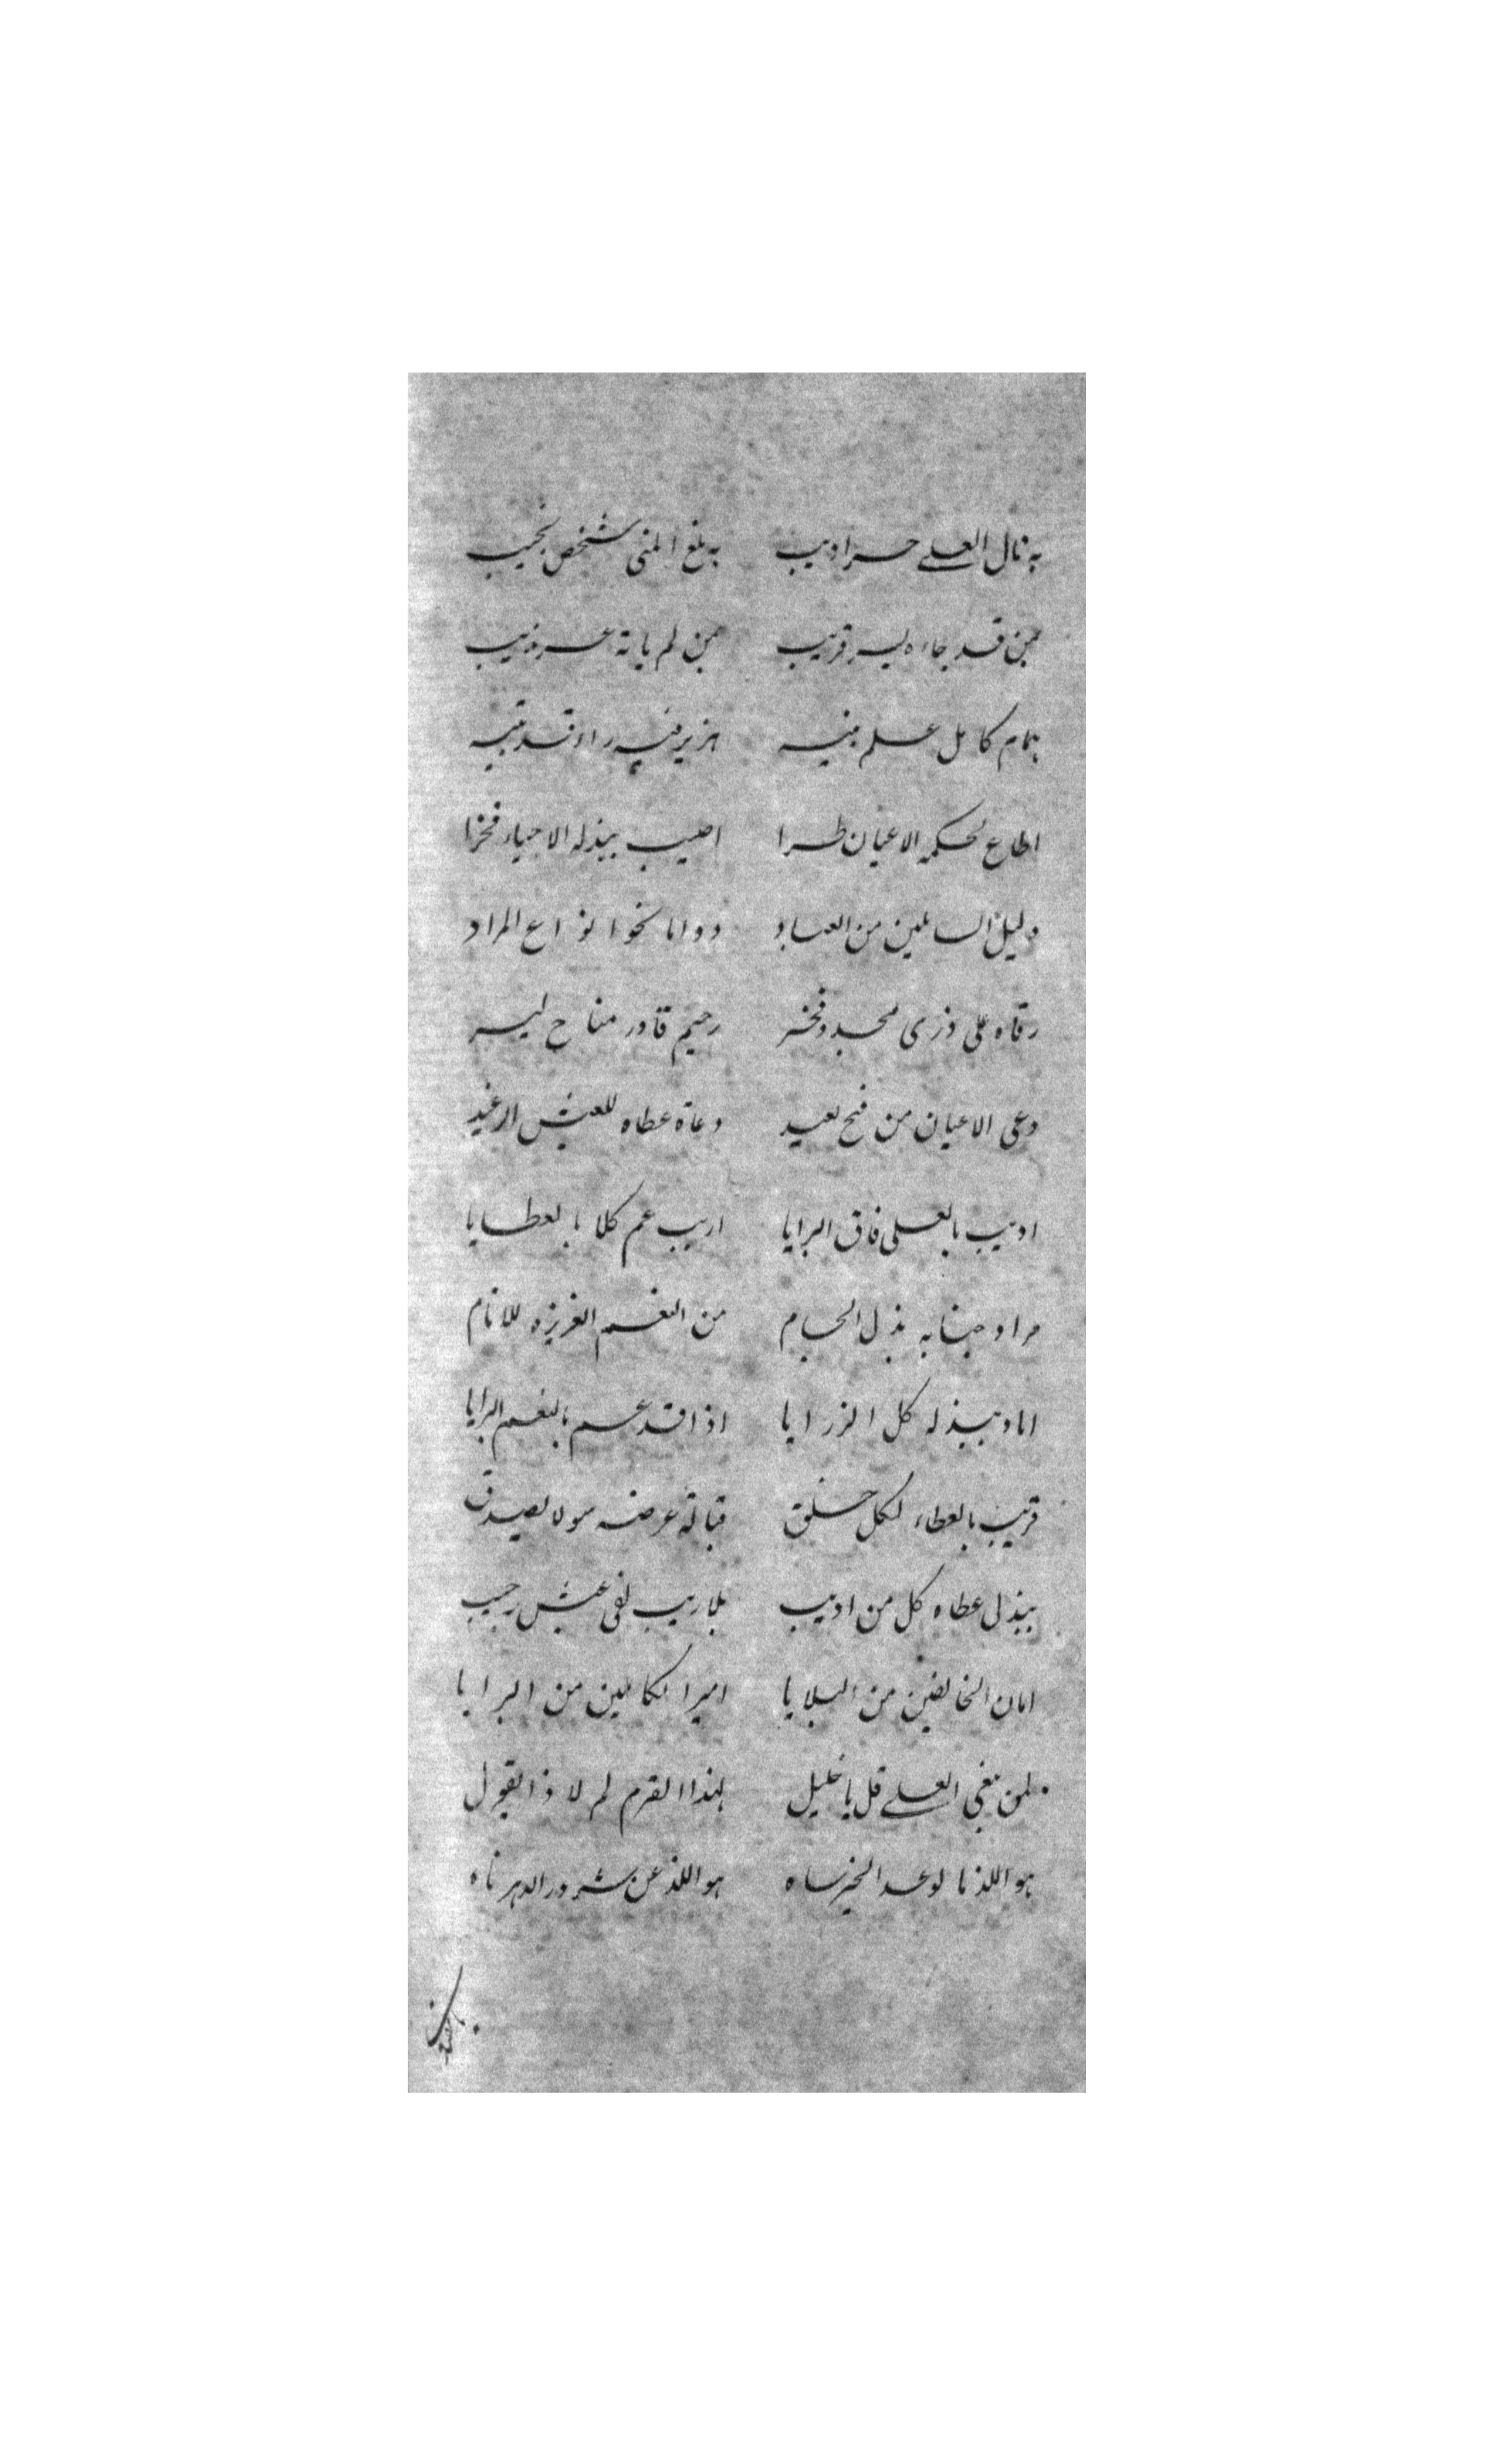 به نال العلے حر اديب به بلغ المنى شخص نجيب
لمن قد جاءه يسر قريب لمن لم ياته عسر منيب
همام كامل علم نبيه هزبر فيه راء قد تيبه
اطاع لحكمه الاعيان طرا اصيب ببذله الاحياء فخرا
دليل السائلين من العباد دواما نحو انواع المراد
رقاه على ذرى مجد وفخر رحيم قادر مناح ليسر
دعى الاعيان من فج بعيد دعاة عطاه للعيش الرغيد
اديب بالعلى فاق البرايا اريب عم كلا بالعطايا
مراد جنابه بذل الجسام من النعم الغزيزه للانام
اباد ببذله كل الزرايا اذا قد عم بالنعم البرايا
قريب بالعطاء لكل خلق قبالة عرضه مولا بصدق
ببذل عطاه كل من اديب بلا ريب لفى عيش رحيب
امان الخائفين من البلايا امير الكاملين من البرايا
لمن يبغى العلے قل يا خليل لهذا القرم لم لا ذا يقول
هو اللذ نا لوعد الخير ساه هو اللذ عن شرور الدهر ناه